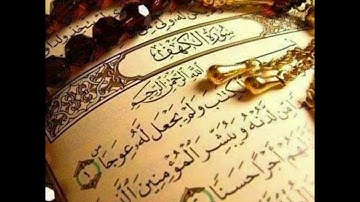 سُورَةُ الْكَهْفِ
بِسْمِ اللَّهِ الرَّحْمَٰنِ الرَّحِيمِ
الْكِتَٰبَ وَلَمْ يَجْعَل لَّهُۥ عِوَجَا ١
مِّن لَّدُنْهُ وَيُبَشِّرَ الْمُؤْمِنِينَ
لَهُمْ أَجْرًا حَسَنًا ٢